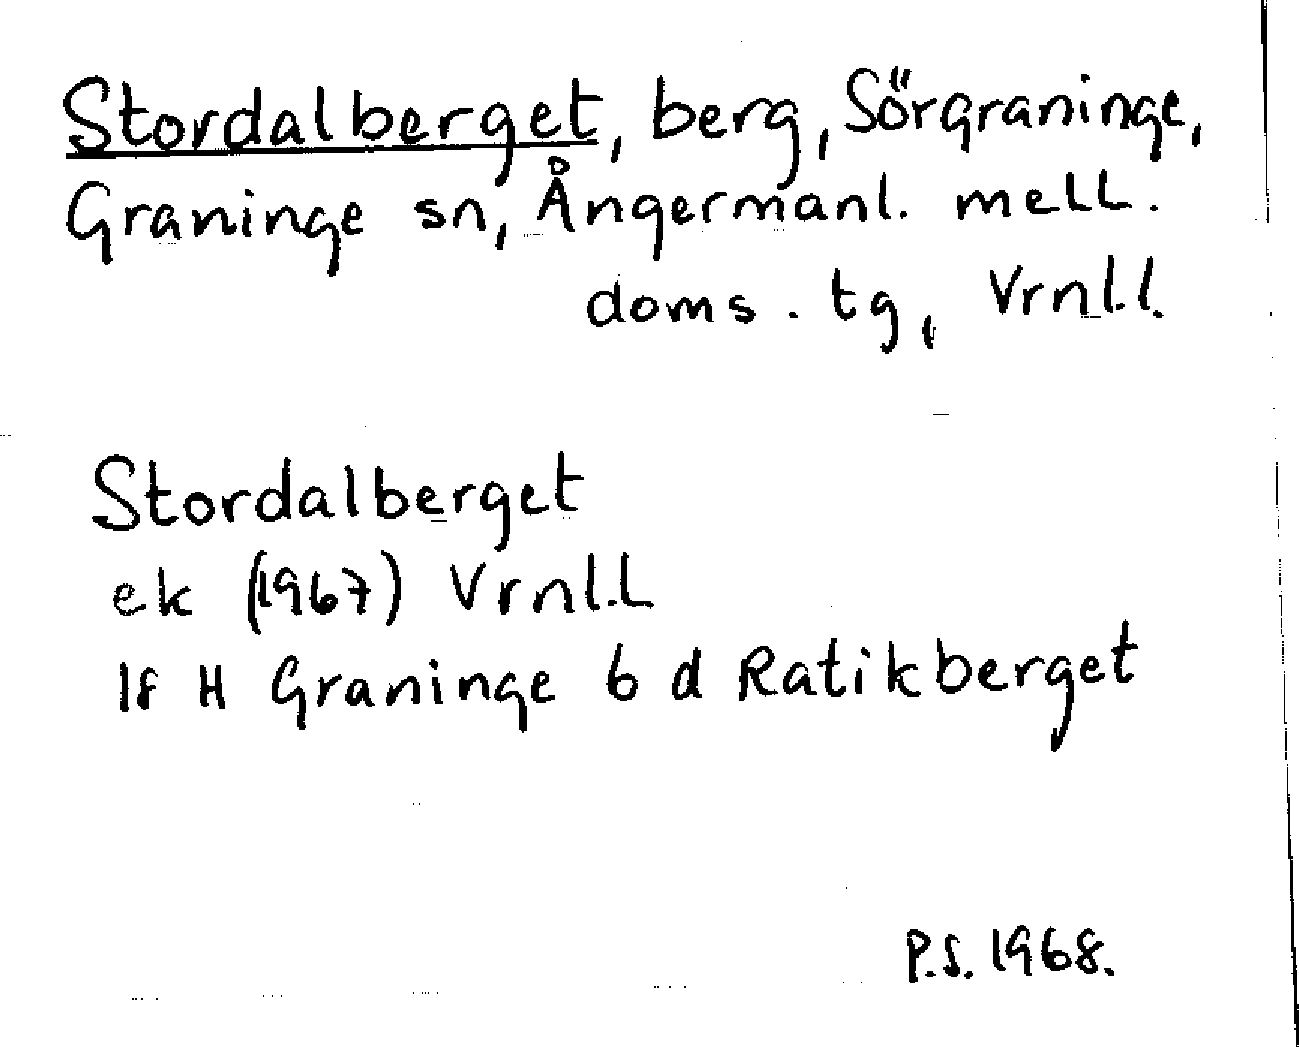 Stordalberget, berg, Sörgraninge,
Graninge sn, Ångermanl. mell.
doms. tg, Vrnl.l.
Stordalberget
ek (1967) Vrnl.L
lf H Graninge 6 d Ratikberget
P.S. 1968.